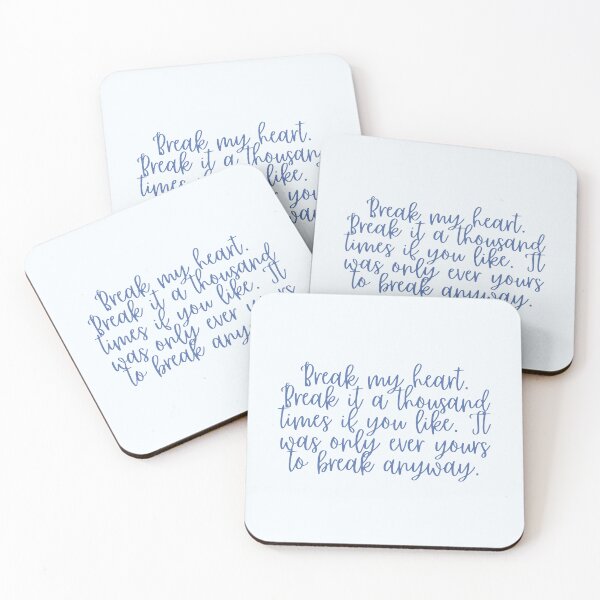 Break my heart.
Break it a
times
like.
Break my heart.
Break it a thousand
times if you like. It
was only ever yours
to break anyway.
Break my heart.
Break it a thousand
times if you like. It
was only ever yours
to break
Break my heart.
Break it a thousand
times if you like. It
was only ever yours
to break anyway.